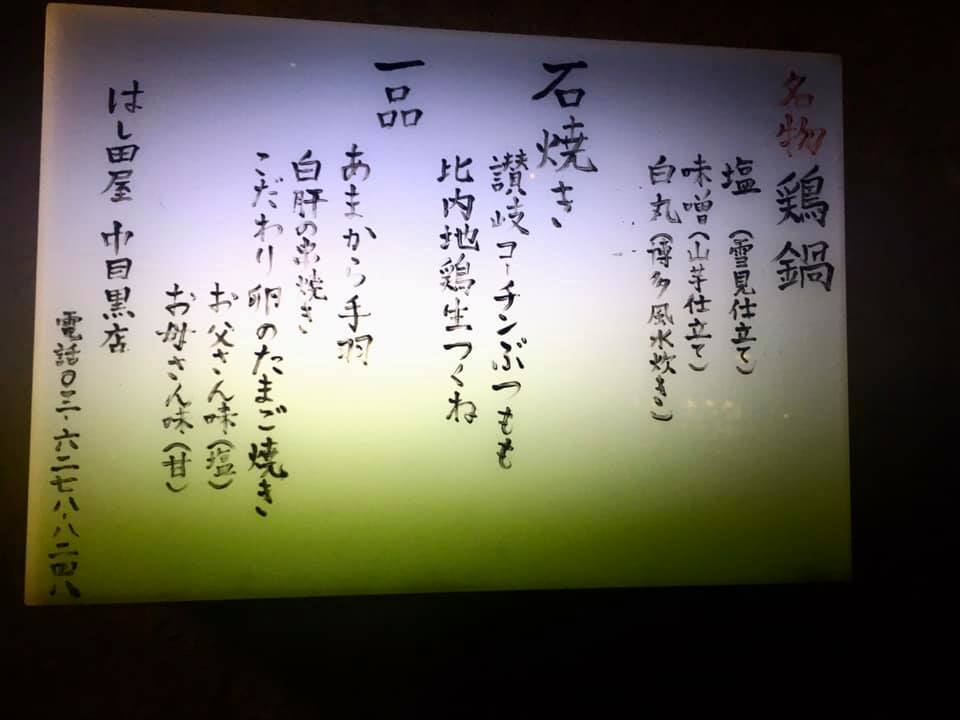 名物 鶏鍋
塩(雪見仕立て)
味噌(山芋仕立て)
白丸(博多風水炊き)
石焼き
讃岐コーチンぶつもも
比内地鶏生つくね
一品
あまから手羽
白肝の串焼き
こだわり卵のたまご焼き
お父さん味(塩)
お母さん味(甘)
はし田屋 中目黒店
電話〇三-六二七八-八二四八